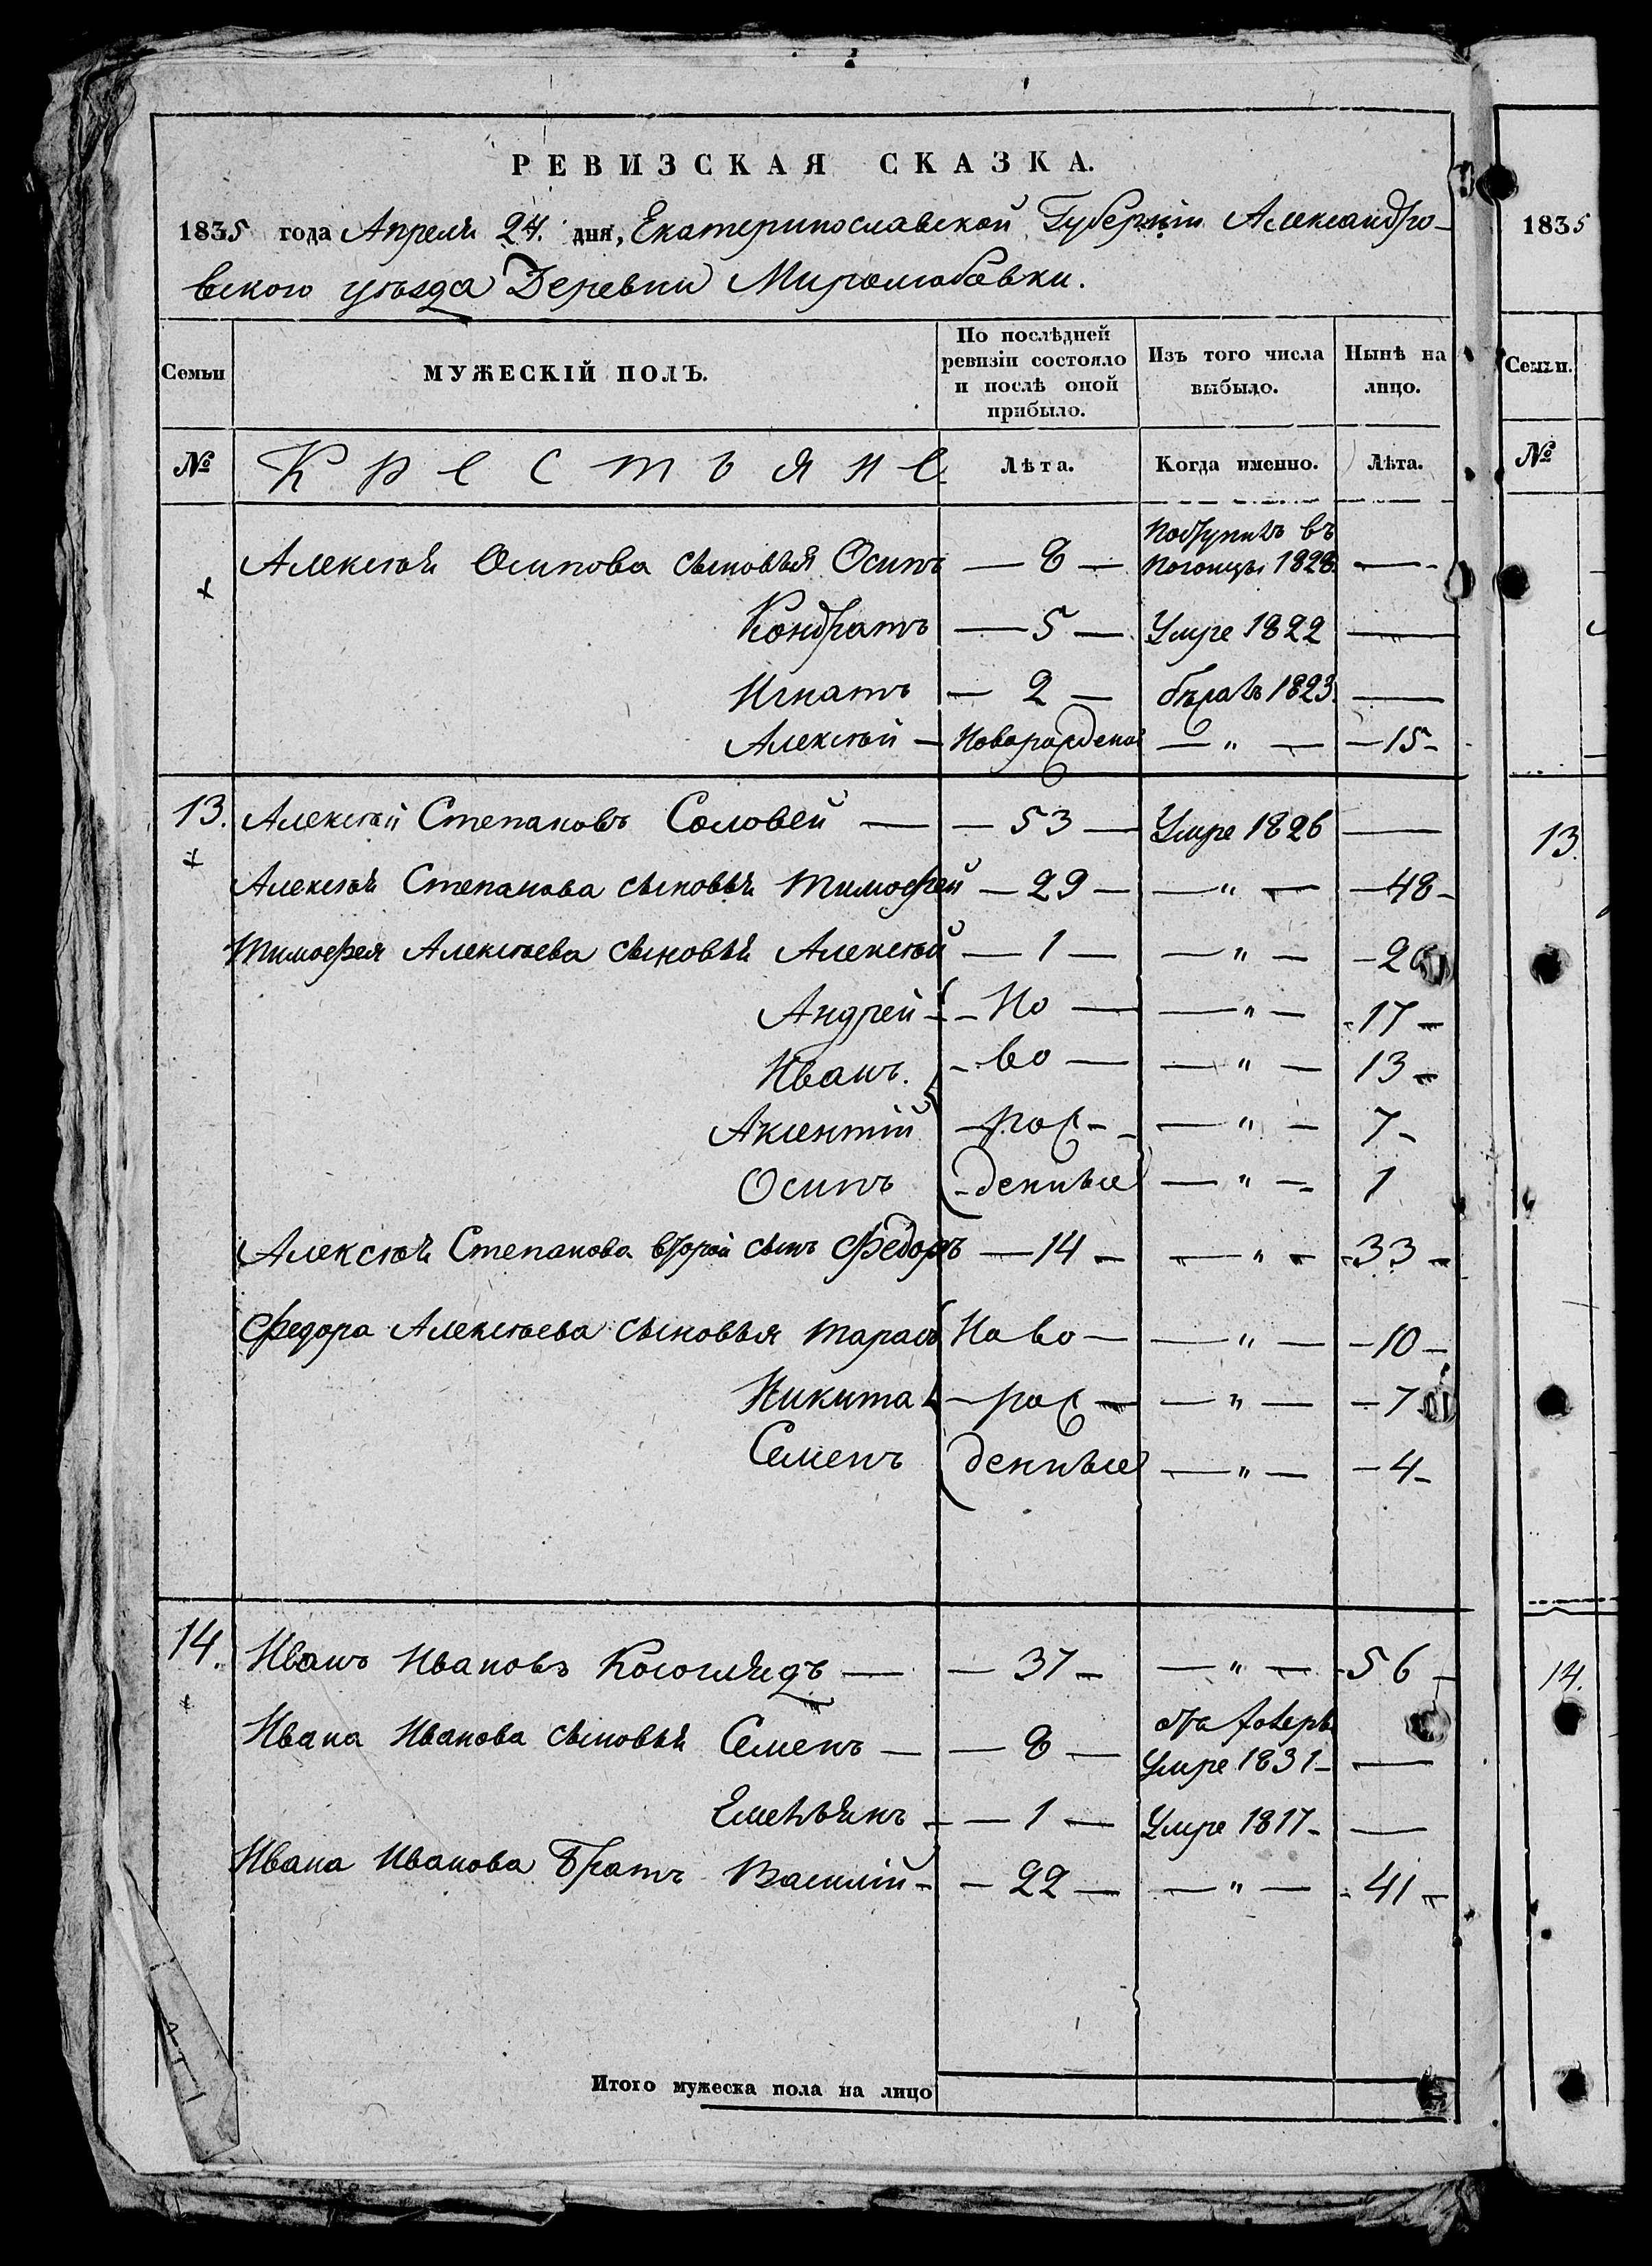 РЕВИЗСКАЯ СКАЗКА.
1835 года Апреля 24. дня, Екатеринославской Губерніи Александро-
вского уѣзда Деревни Миролюбовки.
Семьи МУЖЕСКІЙ ПОЛЪ. По послѣдней ревизіи состояло и послѣ оной прибыло. Изъ того числа выбыло. Нынѣ на лицо.
№ Крестьяне Лѣта. Когда именно. Лѣта.
Алексѣя Осипова сыновья Осипъ — 8 — 1828. —
Кондратъ — 5 — Умре 1822 —
Игнатъ — 2 — 1823. —
Алексѣй — Новорожденой — " — — 15 -
13. Алексѣй Степановъ Соловей — — 53 — Умре 1826 —
Алексѣя Степанова сыновья Тимофей — 29 — — " — — 48 -
Тимофея Алексѣева сыновья Алексѣй — 1 — — " — — 20
Андрей - - Но — — " — - 17 -
Иванъ. - во — — " — 13 -
Аксентій — рож - — " — 7 -
Осипъ - денные — " — 1
Алексѣя Степанова второй сынъ Федоръ — 14 - — " - - 33 -
Федора Алексѣева сыновья Тарасъ Ново — — " — — 10 -
Никита — рож — — " — — 7
Семенъ денные — " — — 4 -
14. Иванъ Ивановъ Косоглядъ — — 37 - — " — - 56 -
Ивана Иванова сыновья Семенъ — — 8 — Умре 1831 - —
Емельянъ - — 1 — Умре 1817 - —
Ивана Иванова Братъ Василій - — 22 — — " — - 41 -
Итого мужеска пола на лицо
1835
Семьи.
№
13.
14.